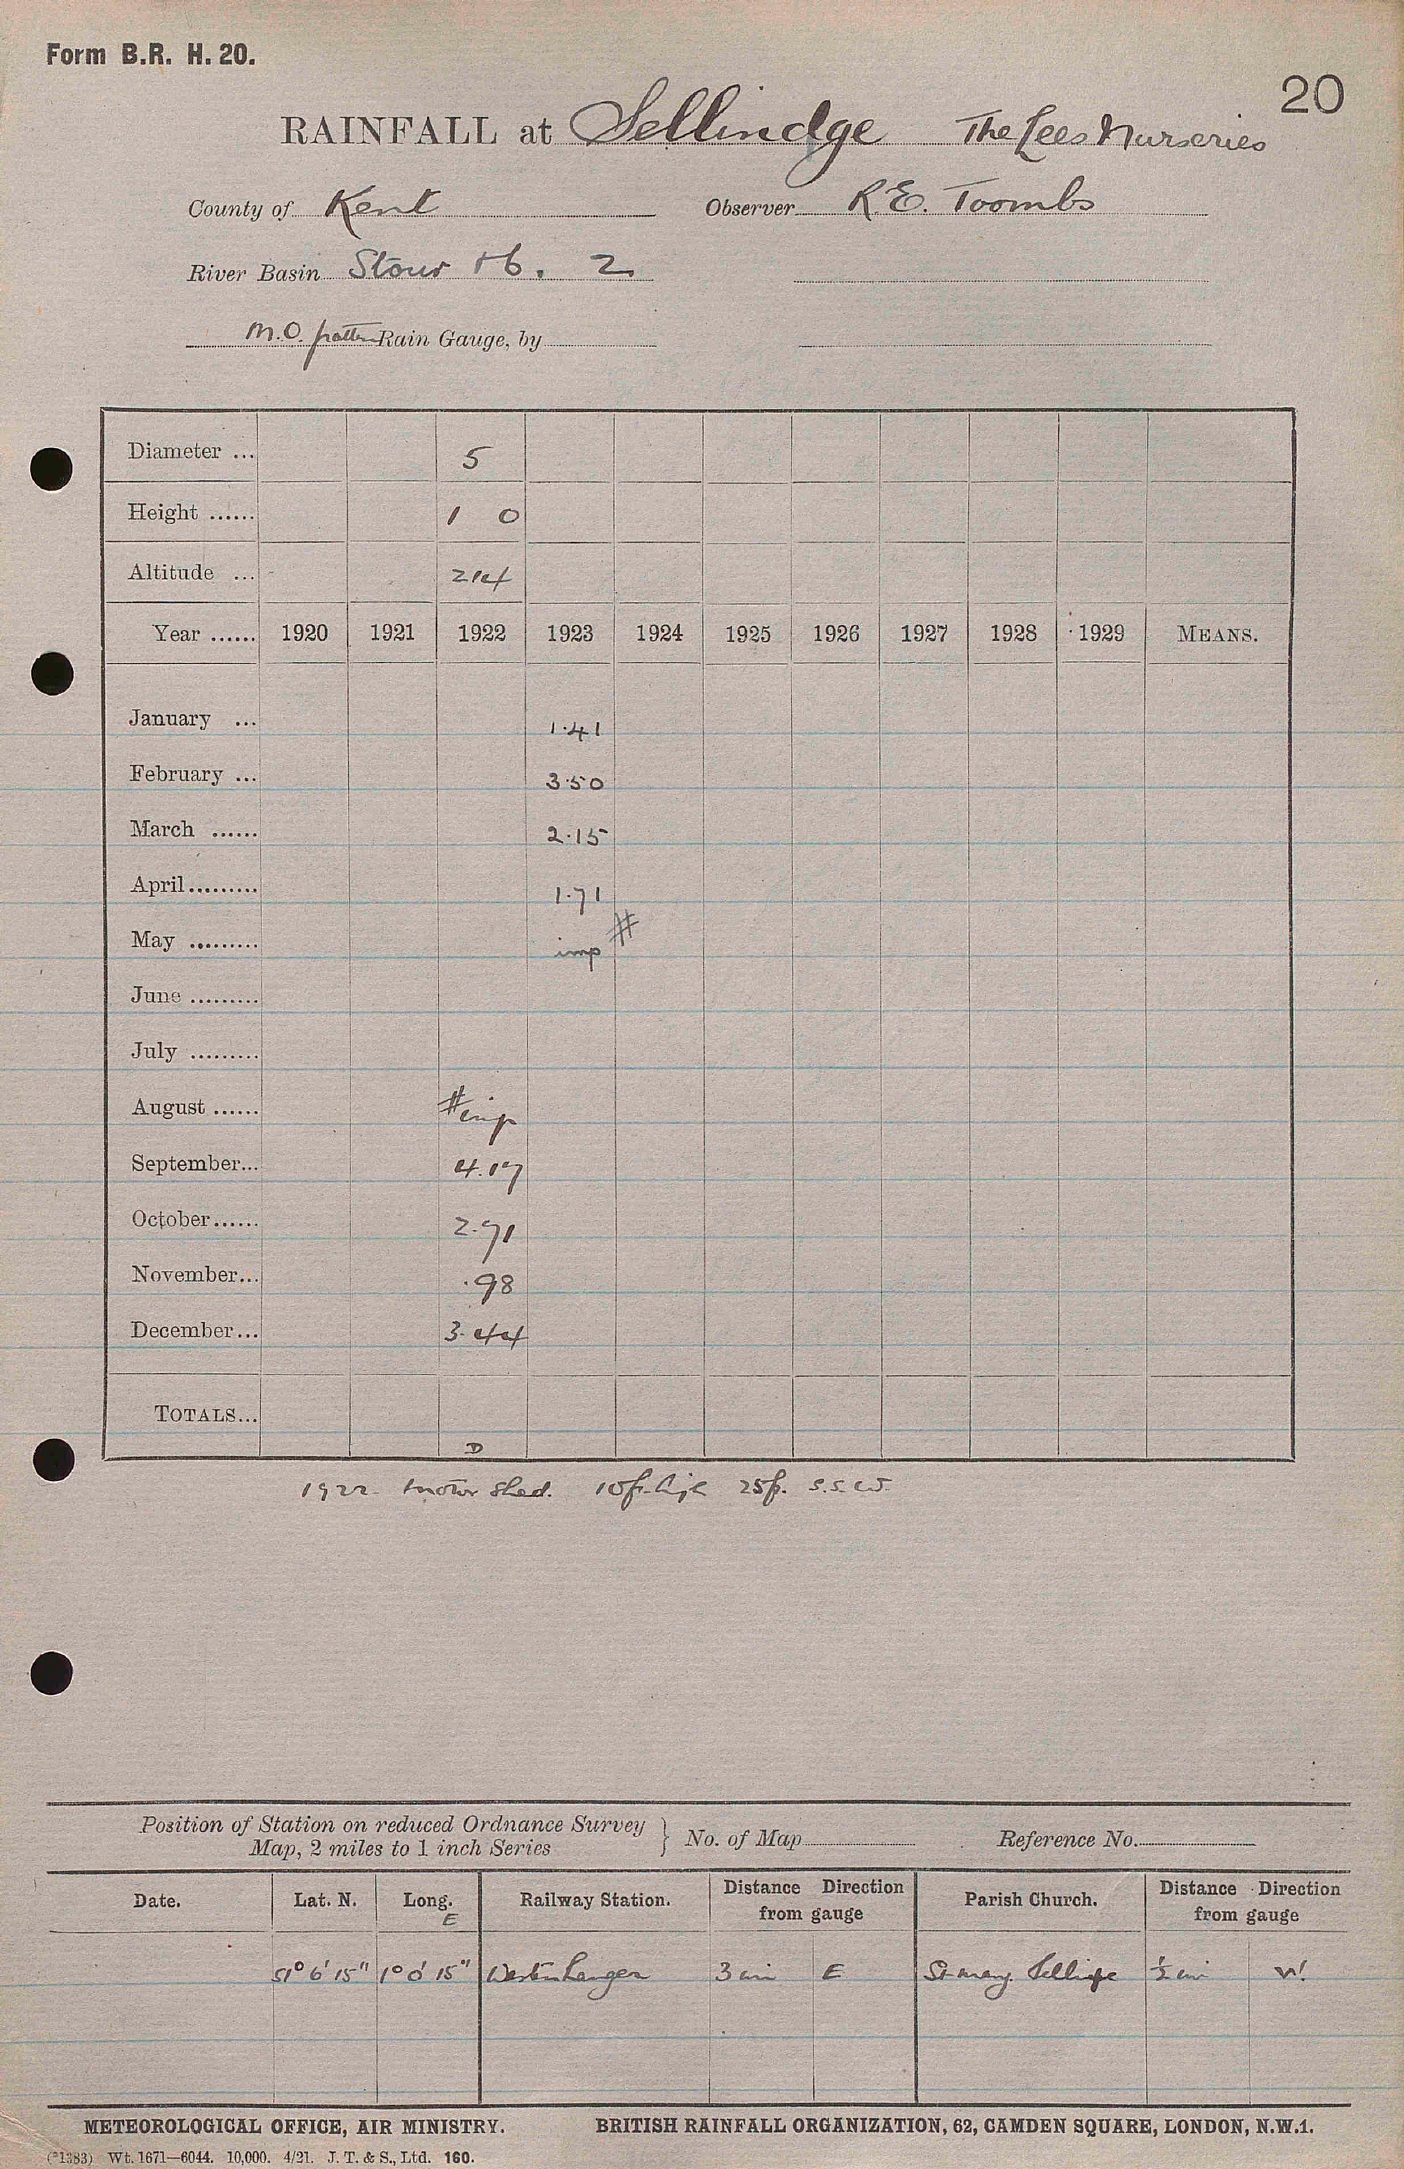 Form B.R. H. 20.
20
RAINFALL at Sellindge The Lees Nurseries
County of Kent Observer R.E. Toombs
River Basin Stour 2
M.O. pattern Rain Gauge, by
Diameter ... 5
Height ...... 1 0
Altitude ... 214
Year ...... 1920 1921 1922 1923 1924 1925 1926 1927 1928 1929 MEANS.
January ... 1.41
February ... 3.50
March ...... 2.15
April ......... 1.71
May ......... imp #
June .........
July .........
August ...... # imp
September... 4.17
October ...... 2.91
November... .98
December... 3.44
TOTALS...
D
1922 Motor shed. 10ft. high 25ft. S.S.W.
Position of Station on reduced Ordnance Survey
Map, 2 miles to 1 inch Series } No. of Map Reference No.
Date. Lat. N. Long. E Railway Station. Distance Direction from gauge Parish Church. Distance Direction from gauge
51° 6' 15" 1° 0' 15" Westenhanger 3 mi E St. Mary. ½ mi W.
METEOROLOGICAL OFFICE, AIR MINISTRY. BRITISH RAINFALL ORGANIZATION, 62, CAMDEN SQUARE, LONDON, N.W.1.
(*1383) Wt. 1671—6044. 10,000. 4/21. J. T. & S., Ltd. 160.